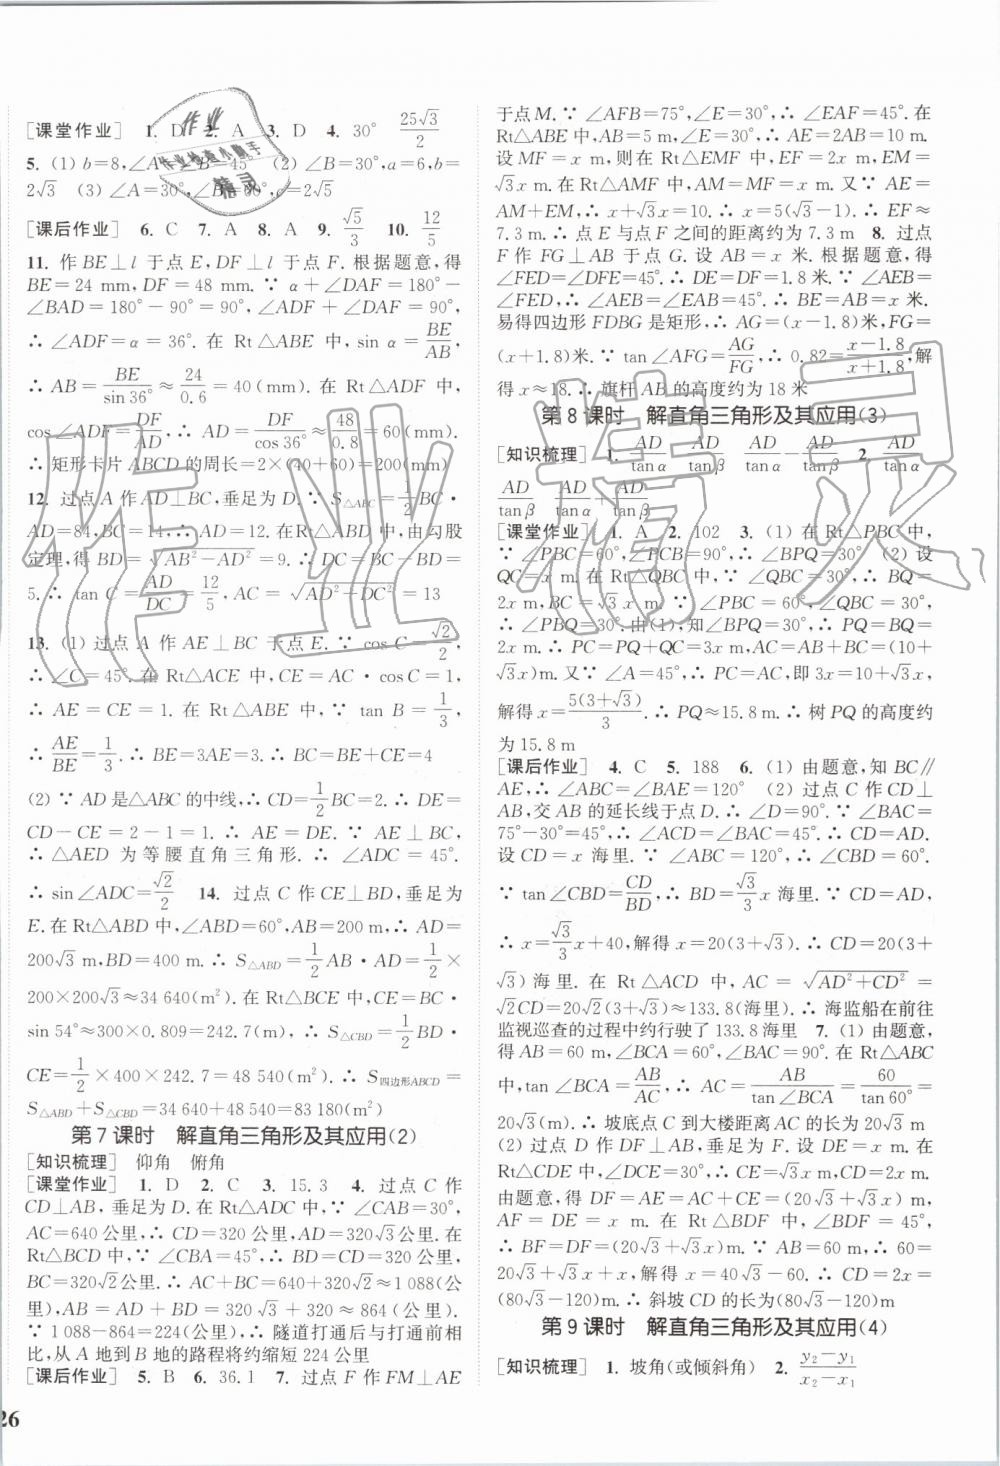 [课堂作业] 1. D 2. A 3. D 4. 30° 25√3/2
5. (1) b=8,∠A=∠B=45° (2) ∠B=30°,a=6,b=
2√3 (3) ∠A=30°,∠B=60°,c=2√5
[课后作业] 6. C 7. A 8. A 9. √5/3 10. 12/5
11. 作BE⊥l于点E,DF⊥l于点F.根据题意,得
BE=24 mm,DF=48 mm.∵ α+∠DAF=180°-
∠BAD=180°-90°=90°,∠ADF+∠DAF=90°,
∴ ∠ADF=α=36°.在Rt△ABE中,sin α=BE/AB,
∴ AB=BE/sin36°≈24/0.6=40(mm).在Rt△ADF中,
cos∠ADF=DF/AD,∴ AD=DF/cos36°≈48/0.8=60(mm).
∴ 矩形卡片ABCD的周长=2×(40+60)=200(mm)
12. 过点A作AD⊥BC,垂足为D.∵ S△ABC=1/2BC·
AD=84,BC=14,∴ AD=12.在Rt△ABD中,由勾股
定理,得BD=√(AB²-AD²)=9.∴ DC=BC-BD=
5.∴ tan C=AD/DC=12/5,AC=√(AD²+DC²)=13
13. (1) 过点A作AE⊥BC于点E.∵ cos C=√2/2,
∴ ∠C=45°.在Rt△ACE中,CE=AC·cos C=1,
∴ AE=CE=1.在Rt△ABE中,∵ tan B=1/3,
∴ AE/BE=1/3.∴ BE=3AE=3.∴ BC=BE+CE=4
(2) ∵ AD是△ABC的中线,∴ CD=1/2BC=2.∴ DE=
CD-CE=2-1=1.∴ AE=DE.∵ AE⊥BC,
∴ △AED为等腰直角三角形.∴ ∠ADC=45°.
∴ sin∠ADC=√2/2 14. 过点C作CE⊥BD,垂足为
E.在Rt△ABD中,∠ABD=60°,AB=200 m,∴ AD=
200√3 m,BD=400 m.∴ S△ABD=1/2AB·AD=1/2×
200×200√3≈34 640(m²).在Rt△BCE中,CE=BC·
sin 54°≈300×0.809=242.7(m),∴ S△CBD=1/2BD·
CE=1/2×400×242.7=48 540(m²).∴ S四边形ABCD=
S△ABD+S△CBD=34 640+48 540=83 180(m²)
第7课时 解直角三角形及其应用(2)
[知识梳理] 仰角 俯角
[课堂作业] 1. D 2. C 3. 15.3 4. 过点C作
CD⊥AB,垂足为D.在Rt△ADC中,∵ ∠CAB=30°,
AC=640公里,∴ CD=320公里,AD=320√3公里.在
Rt△BCD中,∵ ∠CBA=45°,∴ BD=CD=320公里,
BC=320√2公里.∴ AC+BC=640+320√2≈1 088(公
里),AB=AD+BD=320√3+320≈864(公里).
∵ 1 088-864=224(公里),∴ 隧道打通后与打通前相
比,从A地到B地的路程将约缩短224公里
[课后作业] 5. B 6. 36.1 7. 过点F作FM⊥AE
26
于点M.∵ ∠AFB=75°,∠E=30°,∴ ∠EAF=45°.在
Rt△ABE中,AB=5 m,∠E=30°,∴ AE=2AB=10 m.
设MF=x m,则在Rt△EMF中,EF=2x m,EM=
√3x m.在Rt△AMF中,AM=MF=x m.又∵ AE=
AM+EM,∴ x+√3x=10.∴ x=5(√3-1).∴ EF≈
7.3 m.∴ 点E与点F之间的距离约为7.3 m 8. 过点
F作FG⊥AB于点G.设AB=x米.根据题意,得
∠FED=∠DFE=45°.∴ DE=DF=1.8米.∵ ∠AEB=
∠FED,∴ ∠AEB=∠EAB=45°.∴ BE=AB=x米.
易得四边形FDBG是矩形,∴ AG=(x-1.8)米,FG=
(x+1.8)米.∵ tan∠AFG=AG/FG,∴ 0.82=(x-1.8)/(x+1.8),解
得x≈18.∴ 旗杆AB的高度约为18米
第8课时 解直角三角形及其应用(3)
[知识梳理] 1. AD/tanα AD/tanβ AD/tanα-AD/tanβ 2. AD/tanα
AD/tanβ AD/tanα+AD/tanβ
[课堂作业] 1. A 2. 102 3. (1) 在Rt△PBC中,
∵ ∠PBC=60°,∠PCB=90°,∴ ∠BPQ=30° (2) 设
QC=x m.在Rt△QBC中,∵ ∠QBC=30°,∴ BQ=
2x m,BC=√3x m.∵ ∠PBC=60°,∠QBC=30°,
∴ ∠PBQ=30°.由(1),知∠BPQ=30°,∴ PQ=BQ=
2x m.∴ PC=PQ+QC=3x m,AC=AB+BC=(10+
√3x)m.又∵ ∠A=45°,∴ PC=AC,即3x=10+√3x,
解得x=5(3+√3)/3.∴ PQ≈15.8 m.∴ 树PQ的高度约
为15.8 m
[课后作业] 4. C 5. 188 6. (1) 由题意,知BC∥
AE,∴ ∠ABC+∠BAE=180°.∵ ∠BAE=60°,∴ ∠ABC=120° (2) 过点C作CD⊥
AB,交AB的延长线于点D.∴ ∠D=90°.∵ ∠BAC=
75°-30°=45°,∴ ∠ACD=∠BAC=45°.∴ CD=AD.
设CD=x海里.∵ ∠ABC=120°,∴ ∠CBD=60°.
∵ tan∠CBD=CD/BD,∴ BD=√3/3x海里.∵ CD=AD,
∴ x=√3/3x+40,解得x=20(3+√3).∴ CD=20(3+
√3)海里.在Rt△ACD中,AC=√(AD²+CD²)=
√2CD=20√2(3+√3)≈133.8(海里).∴ 海监船在前往
监视巡查的过程中约行驶了133.8海里 7. (1) 由题意,
得AB=60 m,∠BCA=60°,∠BAC=90°.在Rt△ABC
中,tan∠BCA=AB/AC,∴ AC=AB/tan∠BCA=60/tan60°=
20√3(m).∴ 坡底点C到大楼距离AC的长为20√3 m
(2) 过点D作DF⊥AB,垂足为F.设DE=x m.在
Rt△CDE中,∠DCE=30°,∴ CE=√3x m,CD=2x m.
由题意,得DF=AE=AC+CE=(20√3+√3x)m,
AF=DE=x m.在Rt△BDF中,∠BDF=45°,
∴ BF=DF=(20√3+√3x)m.∵ AB=60 m,∴ 60=
20√3+√3x+x,解得x=40√3-60.∴ CD=2x=
(80√3-120)m.∴ 斜坡CD的长为(80√3-120)m
第9课时 解直角三角形及其应用(4)
[知识梳理] 1. 坡角(或倾斜角) 2. (y₂-y₁)/(x₂-x₁)
作业精灵
作业
作业检查小助手
精灵